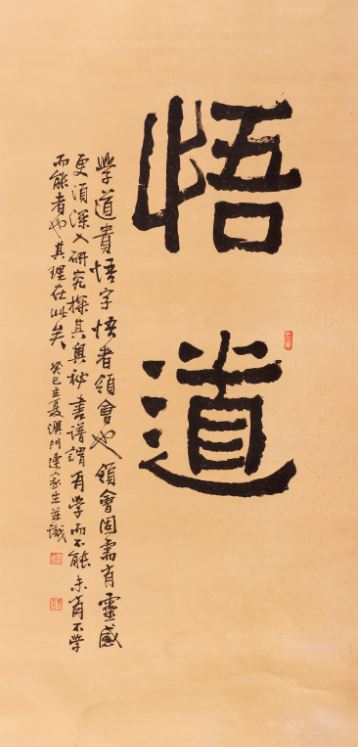 悟道
學道貴悟字悟者領會也領會固需有靈感
更須深入研究探其奧祕書譜謂有學而不能未有不學
而能者也其理在此矣 癸巳立夏澳門連家生並識